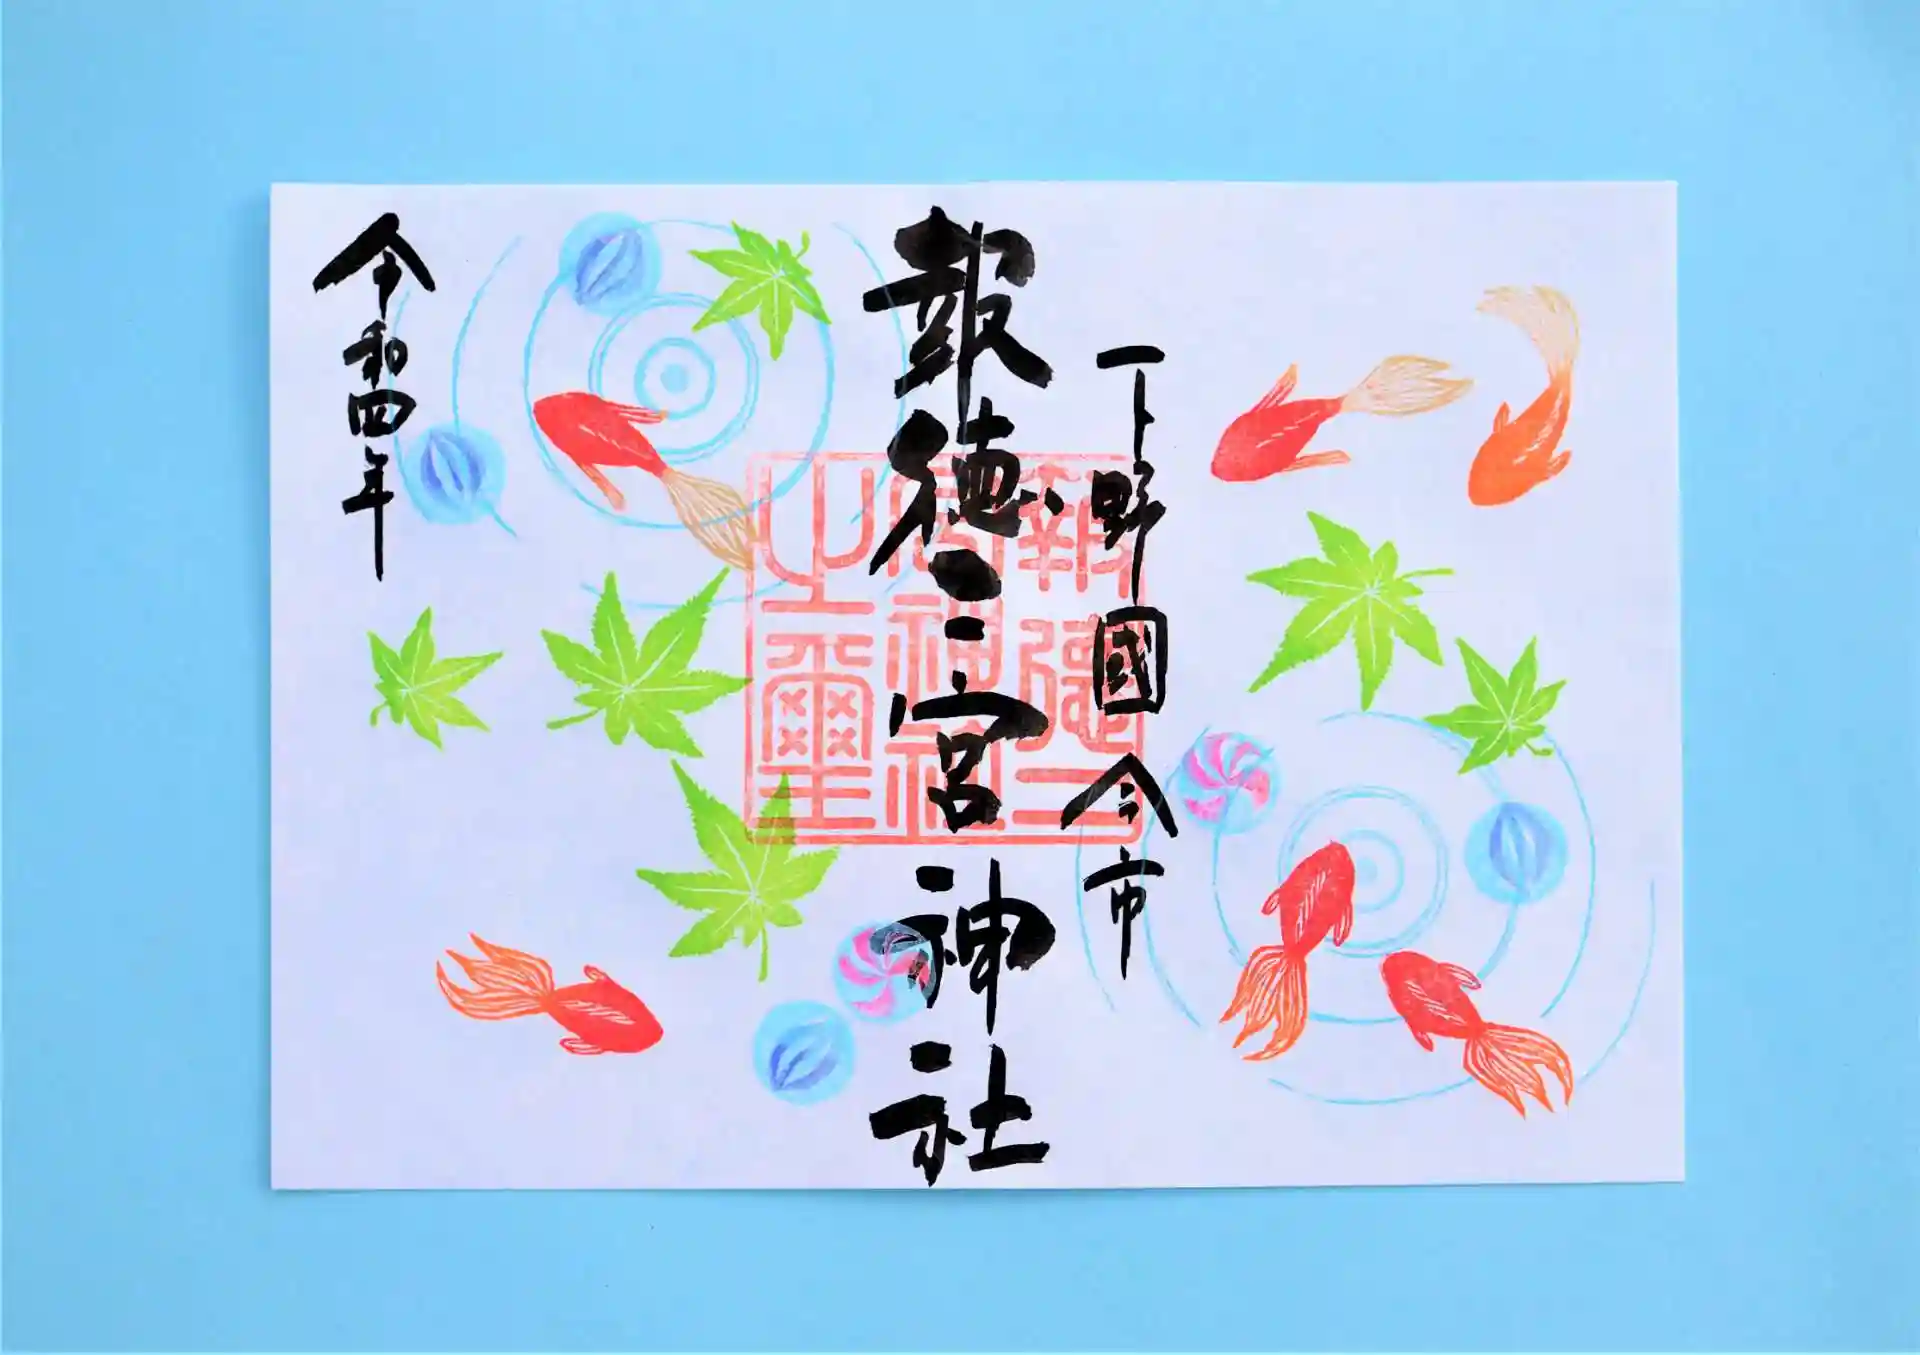 下野國今市
報徳二宮神社
報徳二
宮神社
之璽
令和四年